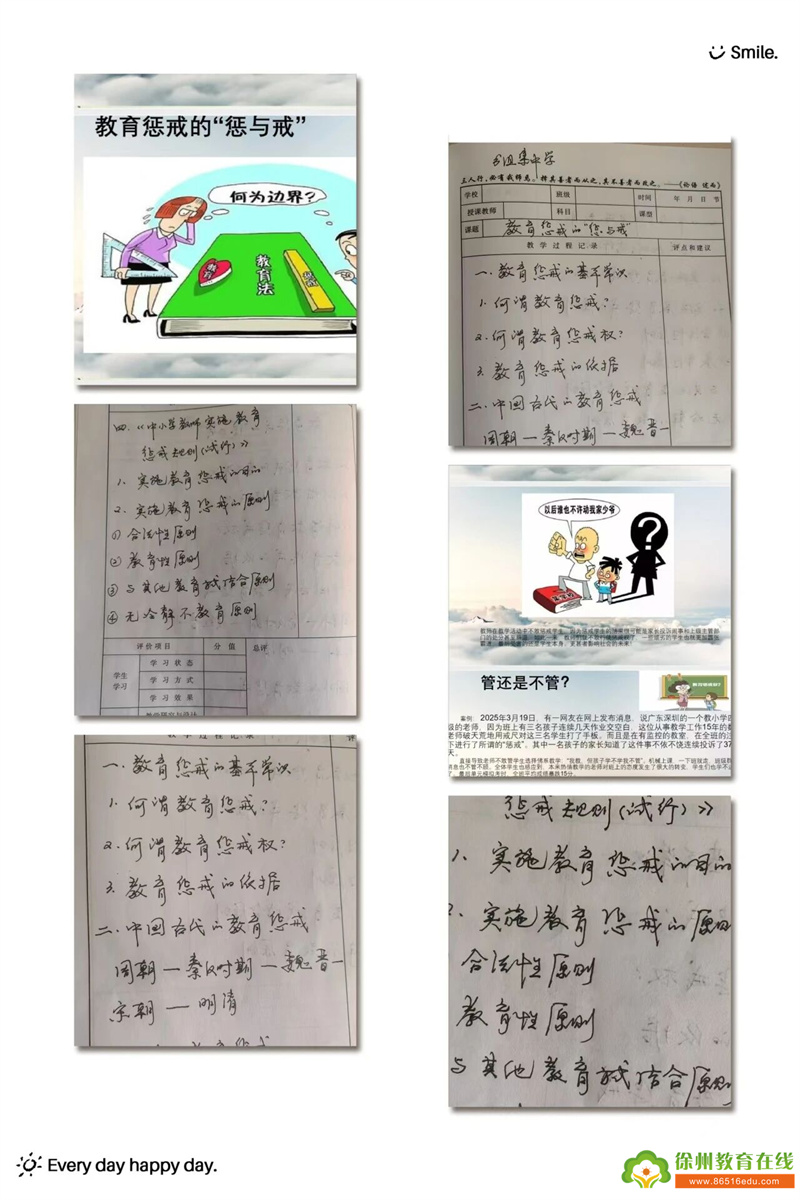 Smile.
教育惩戒的“惩与戒”
何为边界？
教育法
四、《中小学教师实施教育
惩戒规则(试行)》
1、实施教育惩戒的目的
2、实施教育惩戒的原则
① 合法性原则
② 教育性原则
③ 与其他教育相结合原则
④ 无冷静不教育原则
评价项目 分值 总评
学生学习
学习状态
学习方式
学习效果
一、教育惩戒的基本常识
1、何谓教育惩戒？
2、何谓教育惩戒权？
3、教育惩戒的依据
二、中国古代的教育惩戒
周朝—秦汉时期—魏晋—
宗朝—明清
三人行，必有我师焉。择其善者而从之，其不善者而改之。——《论语 述而》
学校 班级 时间 年 月 日 节
授课教师 科目 课型
课题 教育惩戒的“惩与戒”
教学过程记录 评点和建议
一、教育惩戒的基本常识
1、何谓教育惩戒？
2、何谓教育惩戒权？
3、教育惩戒的依据
二、中国古代的教育惩戒
周朝—秦汉时期—魏晋—
以后谁也不许动我家少爷
?
管还是不管？
案例 2025年3月19日，有一网友在网上发布消息，说广东深圳的一个教小学四
级的老师，因为班上有三名孩子连续几天作业交空白，这位从事教学工作15年的教
老师破天荒地用戒尺对这三名学生打了手板，而且是在有监控的教室，在全班的注
下进行了所谓的“惩戒”。其中一名孩子的家长知道了这件事不依不饶连续投诉了37
天。
惩戒规则(试行)》
1、实施教育惩戒的目的
2、实施教育惩戒的原则
合法性原则
教育性原则
与其他教育相结合原则
Every day happy day.
徐州教育在线
www.86516edu.com